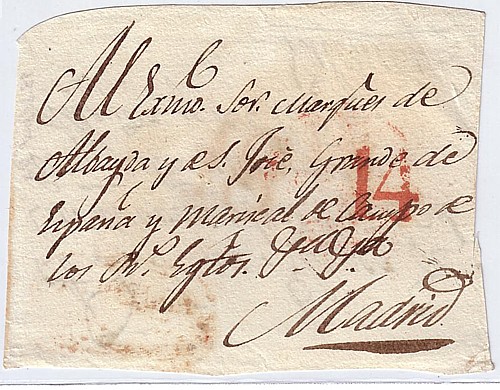 Al Exmo. Sor. Marques de
Albayda y de S. José, Grande de
España y Mariscal de Campo de
los Rs. Egtos.
14
Madrid